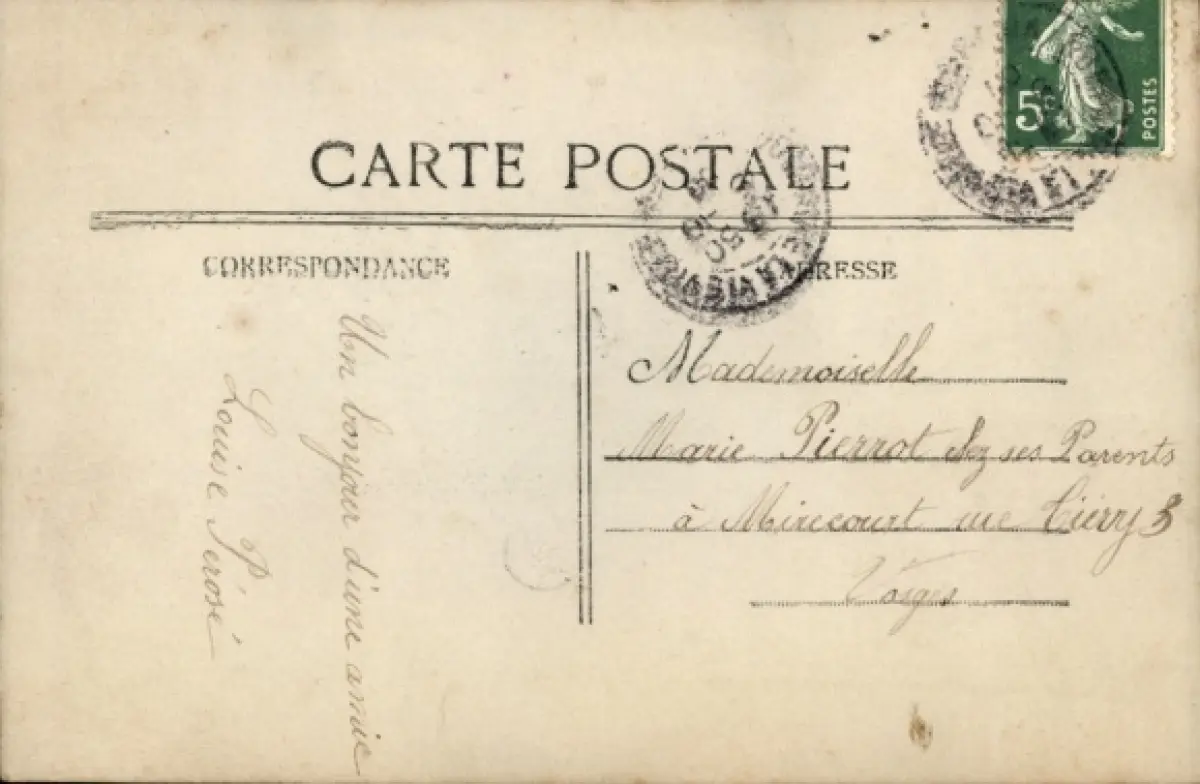 CARTE POSTALE
CORRESPONDANCE
Un bonjour d'une amie
Louise Pérosé
ADRESSE
Mademoiselle
Marie Pierrot chez ses Parents
à Mirecourt rue Thiéry 3
Vosges
5
POSTES